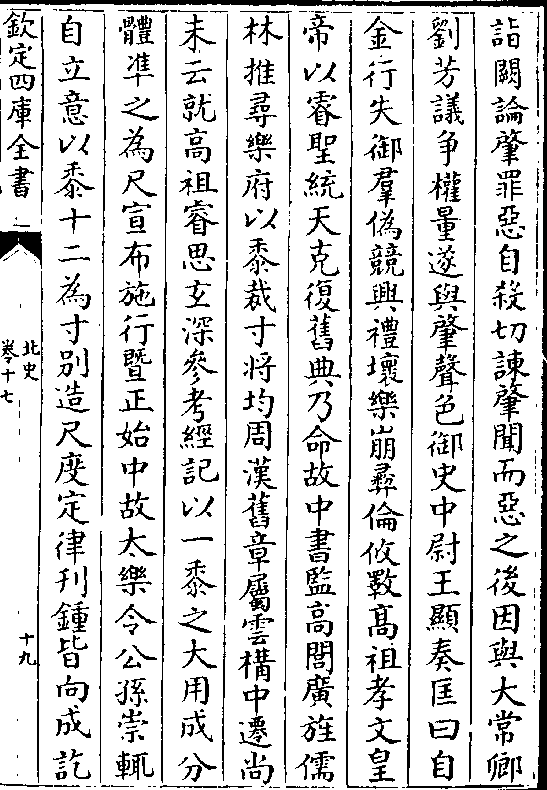 詣闕論肇罪惡自殺切諫肇聞而惡之後因與大常卿
劉芳議爭權量遂與肇聲色御史中尉王顯奏匡曰自
金行失御羣偽競興禮壞樂崩彛倫攸斁高祖孝文皇
帝以睿聖統天克復舊典乃命故中書監高閭廣旌儒
林推尋樂府以黍裁寸將均周漢舊章屬雲構中遷尚
未云就高祖睿思𤣥深參考經記以一黍之大用成分
體準之為尺宣布施行暨正始中故太樂令公孫崇輒
自立意以黍十二為寸別造尺度定律刋鍾皆向成訖
欽定四庫全書
北史
卷十七
十九